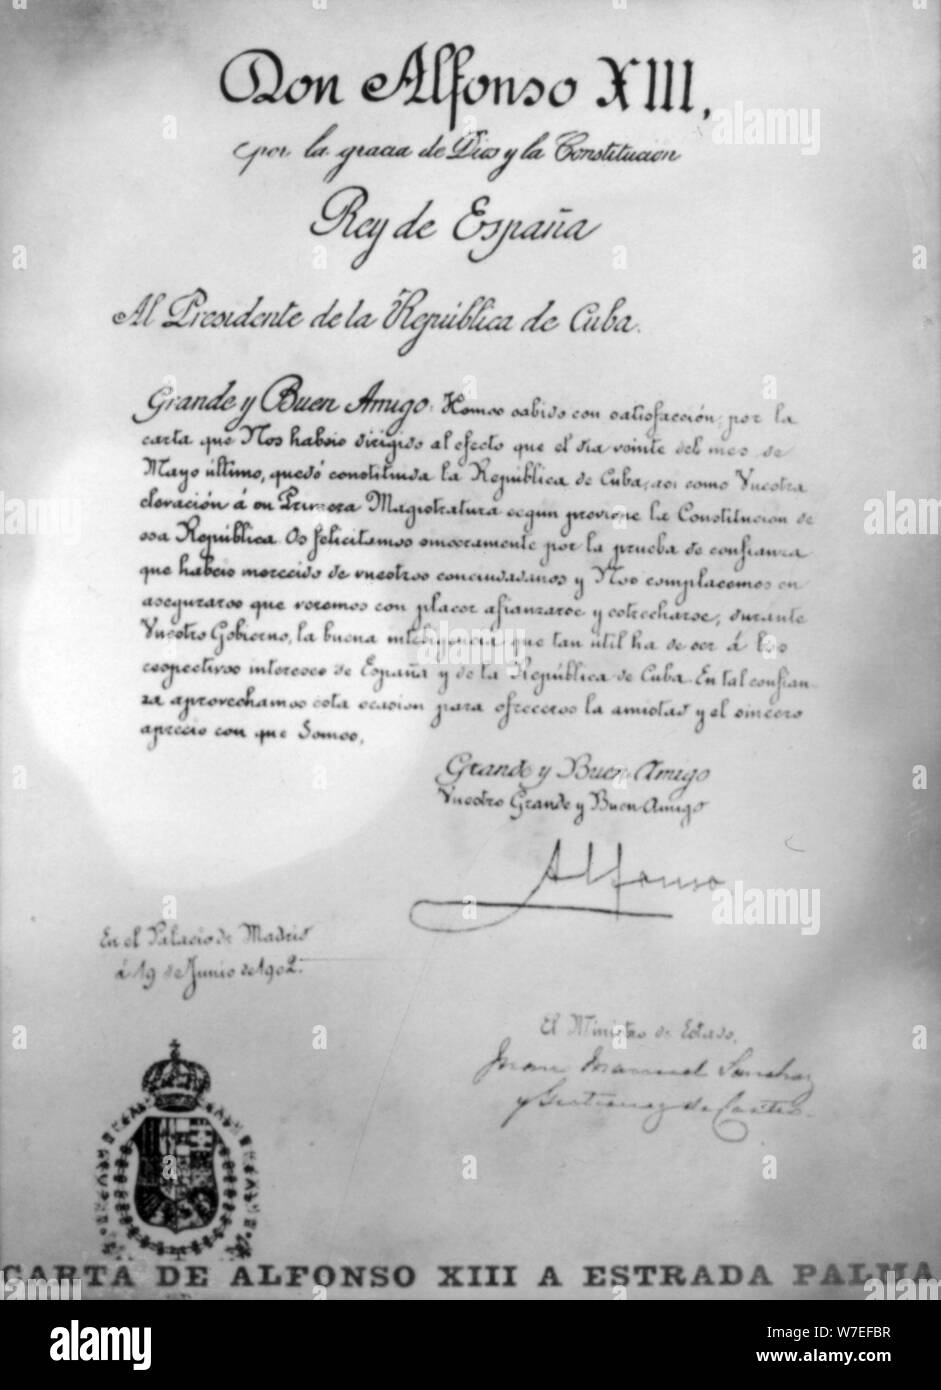 Don Alfonso XIII,
por la gracia de Dios y la Constitución
Rey de España
Al Presidente de la República de Cuba.
Grande y Buen Amigo: Hemos sabido con satisfacción, por la
carta que Nos habeis dirigido al efecto que el dia veinte del mes de
Mayo último, quedó constituida la República de Cuba, asi como Vuestra
elevación á su Primera Magistratura segun previene la Constitución de
esa República. Os felicitamos sinceramente por la prueba de confianza
que habeis merecido de vuestros conciudadanos y Nos complacemos en
aseguraros que veremos con placer afianzarse y estrecharse, durante
Vuestro Gobierno, la buena inteligencia que tan útil ha de ser á los
respectivos intereses de España y de la República de Cuba. En tal confian-
za aprovechamos esta ocasion para ofreceros la amistad y el sincero
aprecio con que Somos,
Grande y Buen Amigo
Vuestro Grande y Buen Amigo
Alfonso
En el Palacio de Madrid
á 19 de Junio de 1902.
El Ministro de Estado,
Juan Manuel Sanchez
y Gutierrez de Castro
CARTA DE ALFONSO XIII A ESTRADA PALMA
alamy
Image ID: W7EFBR
www.alamy.com